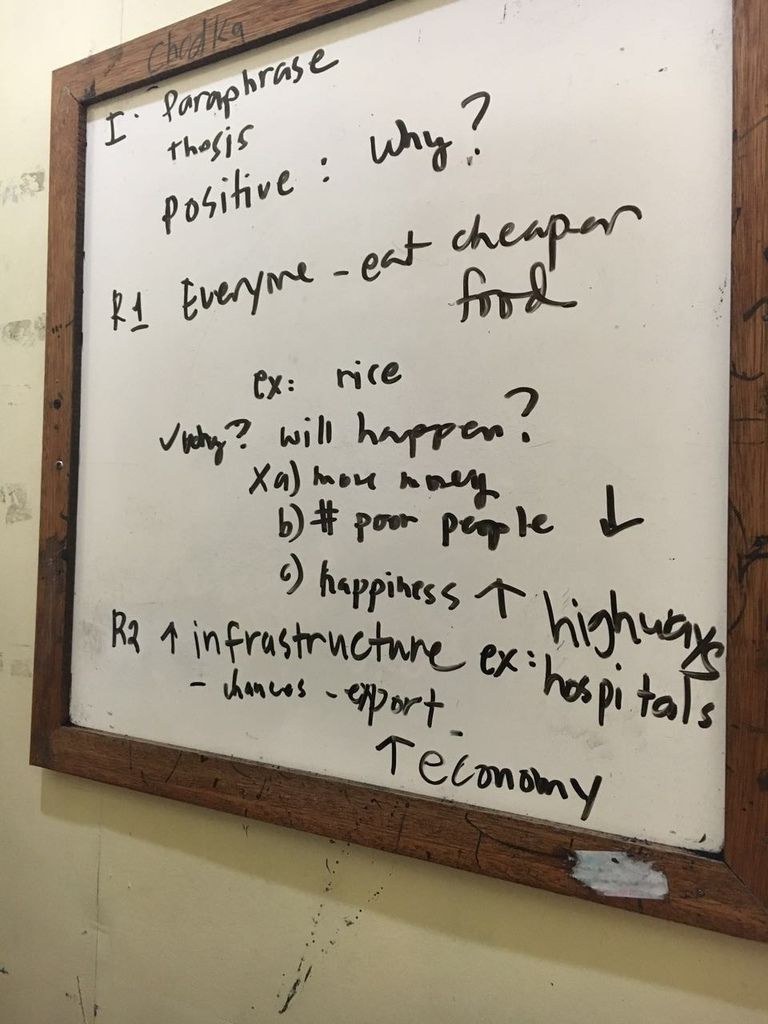 I. Paraphrase
thesis
positive : why?
R1 Everyone - eat cheaper
food
ex: rice
✓why? will happen?
X a) more money
b) # poor people ↓
c) happiness ↑
R2 ↑ infrastructure ex: highways
hospitals
- chances - export
↑ economy